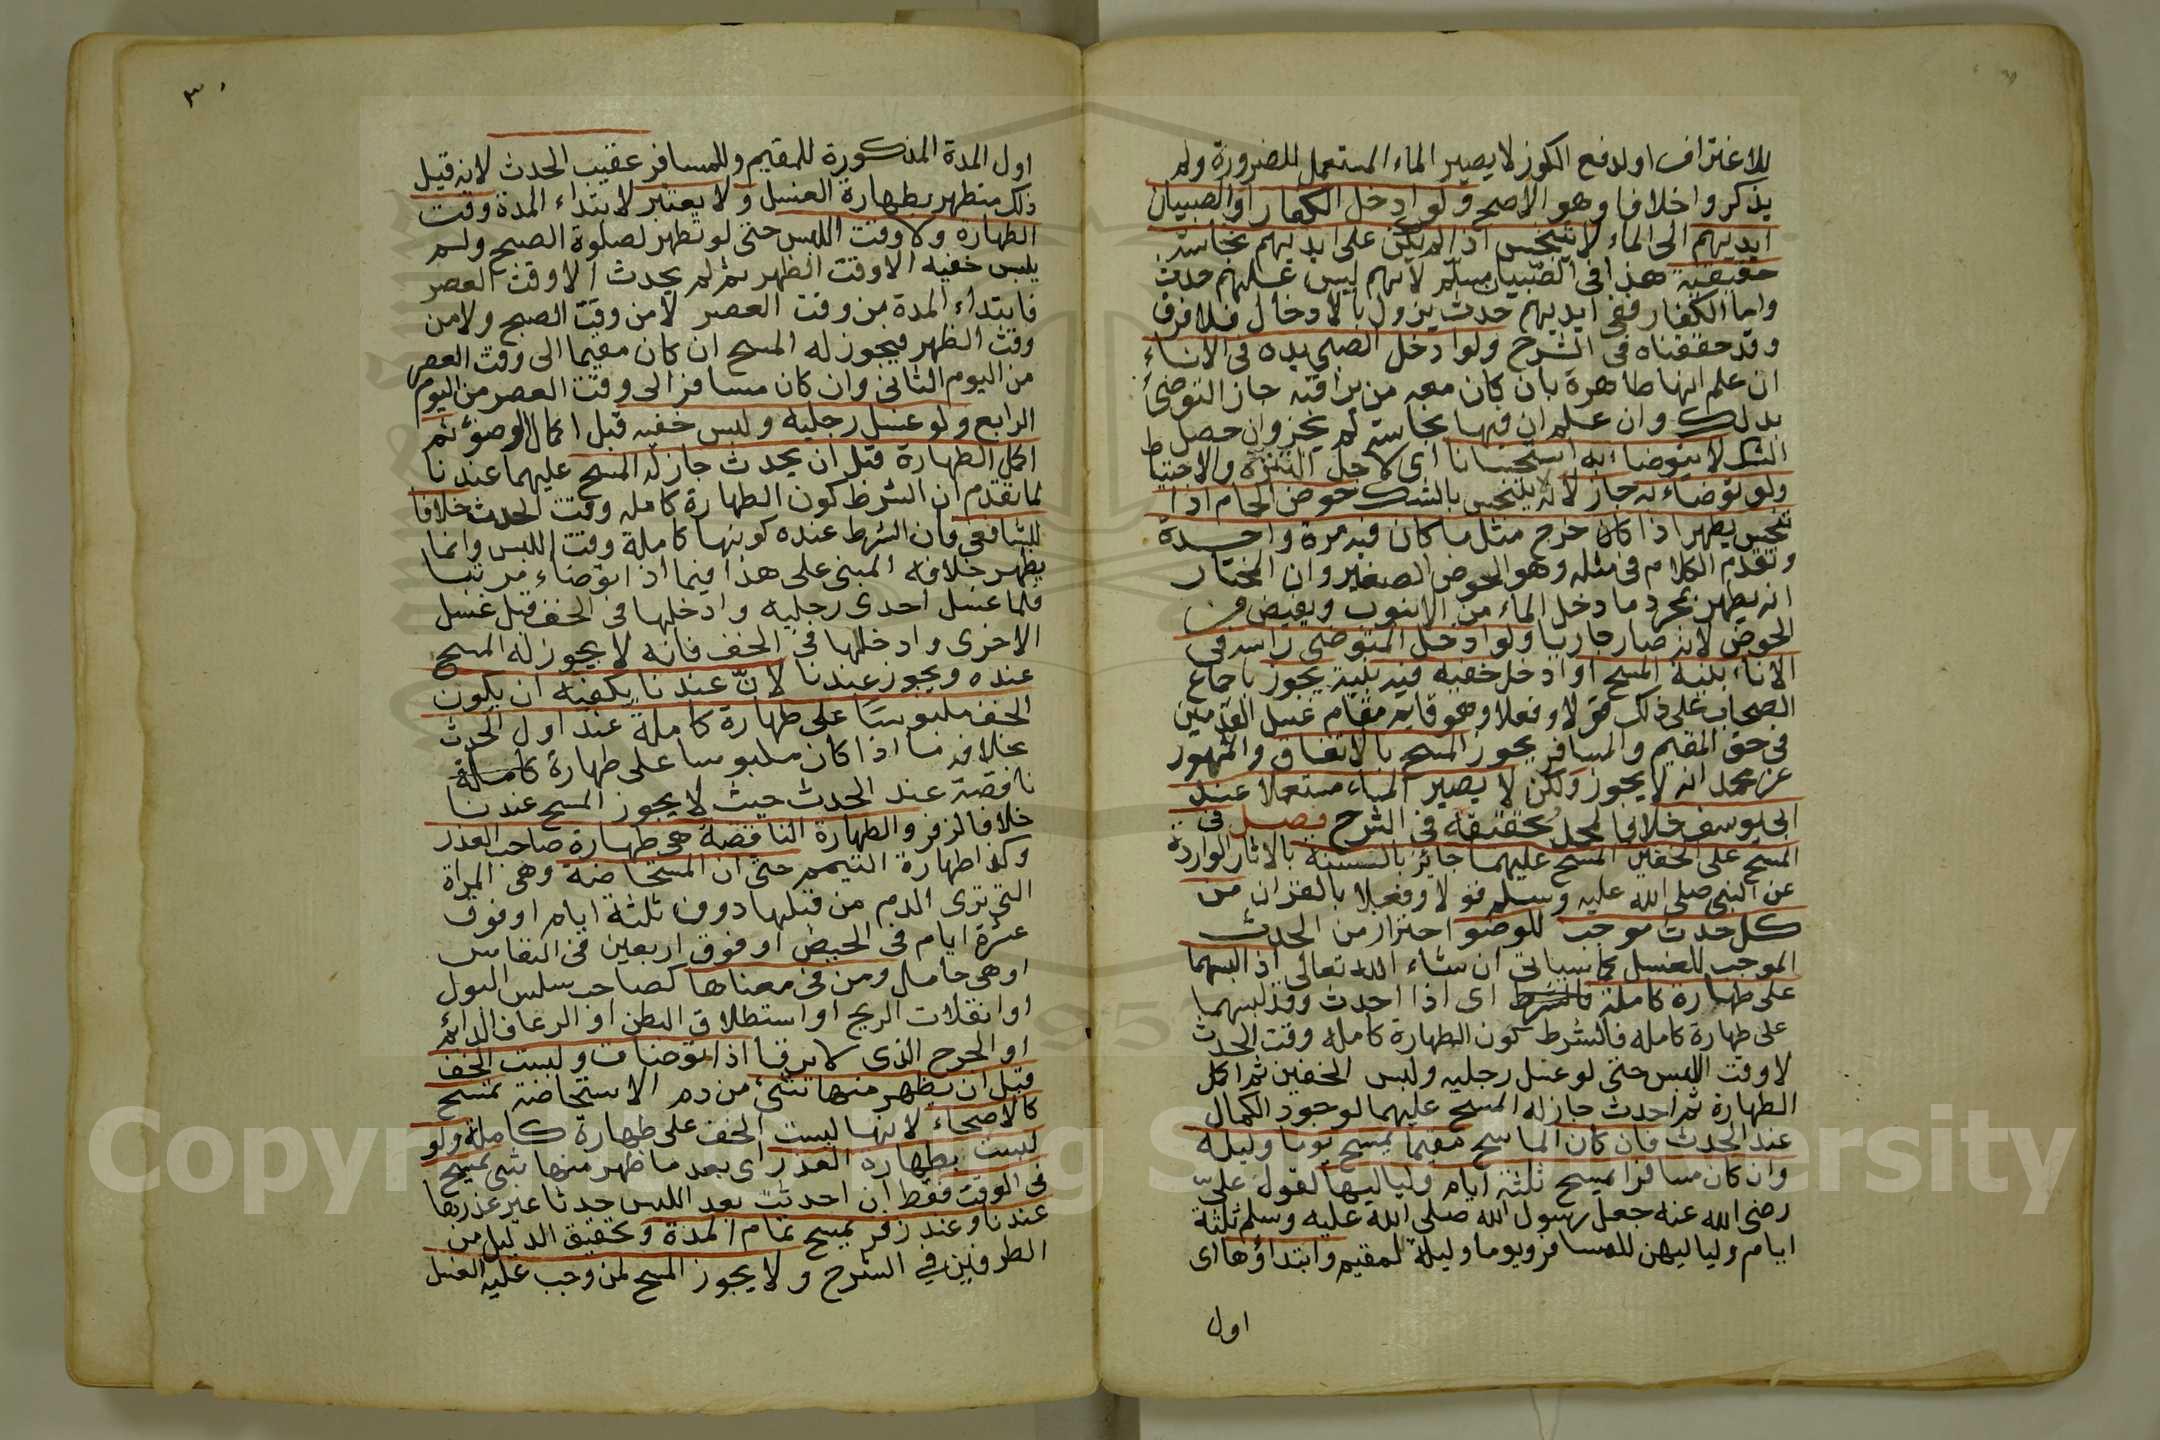 للاغتراف اولدفع الكوز لا يصير الماء المستعمل للضرورة ولم
يذكروا خلافا وهو الاصح ولو ادخل الكفار او الصبيان
ايديهم الى الماء لا يتنجس اذا لم يكن على ايديهم نجاسة
حقيقية هذا فى الصبيان مسلم لانهم ليس عليهم حدث
واما الكفار ففى ايديهم حدث يزول بالادخال فلا فرق
وقد حققناه فى الشرح ولو ادخل الصبى يده فى الاناء
ان علم انها طاهرة بان كان معه من يراقبه جاز التوضئ
بذلك وان علم ان فيها نجاسة لم يجز وان حصل
الشك لا يتوضاء به استحسانا اى لاجل التنزه والاحتياط
ولو توضاء به جاز لانه لا يتنجس بالشك حوض الحمام اذا
تنجس يطهر اذا كان خرج مثل ما كان فيه مرة واحدة
وتقدم الكلام فى مثله وهو الحوض الصغير وان المختار
انه يطهر بمجرد ما دخل الماء من الانبوب ويفيض من
الحوض لانه صار جاريا ولو ادخل المتوضى راسه فى
الاناء بنية المسح او ادخل خفيه فيه بنيته يجوز باجماع
الصحابة على ذلك قولا وفعلا وهو قايم مقام غسل القدمين
فى حق المقيم والمسافر يجوز المسح بالاتفاق والمشهور
عن محمد انه لا يجوز ولكن لا يصير الماء مستعملا عند
ابى يوسف خلافا لمحمد تحقيقه فى الشرح فصل فى
المسح على الخفين المسح عليهما جائز بالسنة بالاثار الواردة
عن النبى صلى الله عليه وسلم قولا وفعلا بالقران من
كل حدث موجب للوضو احتراز من الحدث
الموجب للغسل كما سياتى ان شاء الله تعالى اذا لبسهما
على طهارة كاملة فالشرط اى اذا احدث وقد لبسهما
على طهارة كاملة فالشرط كون الطهارة كاملة وقت الحدث
لا وقت اللبس حتى لو غسل رجليه ولبس الخفين ثم اكمل
الطهارة ثم احدث جاز له المسح عليهما لوجود الكمال
عند الحدث فان كان الماسح مقيما يمسح يوما وليلة
وان كان مسافرا يمسح ثلثة ايام ولياليها لقول علىّ
رضى الله عنه جعل رسول الله صلى الله عليه وسلم ثلثة
ايام ولياليهن للمسافر ويوما وليلة لمقيم وابتداؤها اى
اول
٣٠
اول المدة المذكورة للمقيم وللمسافر عقيب الحدث لانه قبل
ذلك متطهر بطهارة الغسل ولا يعتبر لابتداء المدة وقت
الطهارة ولا وقت اللبس حتى لو تطهر لصلوة الصبح ولم
يلبس خفيه الا وقت الظهر ثم لم يحدث الا وقت العصر
فابتداء المدة من وقت العصر لا من وقت الصبح ولا من
وقت الظهر فيجوز له المسح ان كان مقيما الى وقت العصر
من اليوم الثانى وان كان مسافرا الى وقت العصر من اليوم
الرابع ولو غسل رجليه ولبس خفيه قبل اكمال الوضوء ثم
اكمل الطهارة قبل ان يحدث جاز له المسح عليهما عندنا
لما تقدم ان الشرط كون الطهارة كاملة وقت الحدث خلافا
للشافعى فان الشرط عنده كونها كاملة وقت اللبس وانما
يظهر خلافه المبنى على هذا فيما اذا توضاء مرتبا
فلما غسل احدى رجليه وادخلها فى الخف قبل غسل
الاخرى وادخلها فى الخف فانه لا يجوز له المسح
عنده ويجوز عندنا لانّ عندنا يكفيه ان يكون
الخف ملبوسا على طهارة كاملة عند اول الحدث
بخلاف ما اذا كان ملبوسا على طهارة كاملة
ناقصة عند الحدث حيث لا يجوز المسح عندنا
خلافا لزفر والطهارة الناقصة هى طهارة صاحب العذر
وكذا طهارة التيمم حتى ان المستحاضة وهى المراة
التى ترى الدم من قبلها دون ثلثة ايام او فوق
عشرة ايام فى الحيض او فوق اربعين فى النفاس
او هى حامل ومن فى معناها كصاحب سلس البول
او انفلات الريح او استطلاق البطن او الرعاف الدائم
او الجرح الذى لا يرقا اذا توضات ولبست الخف
قبل ان يظهر منها شئ من دم الاستحاضة تمسح
كالاصحاء لانها لبست الخف على طهارة كاملة ولو
لبست بطهارة العذر اى بعد ما ظهر منها شى تمسح
فى الوقت فقط ان احدثت بعد اللبس حدثا غير عذرها
عندنا وعند زفر يمسح تمام المدة وتحقيق الدليل من
الطرفين في الشرح ولا يجوز المسح لمن وجب عليه الغسل
Copyright © King Saud University